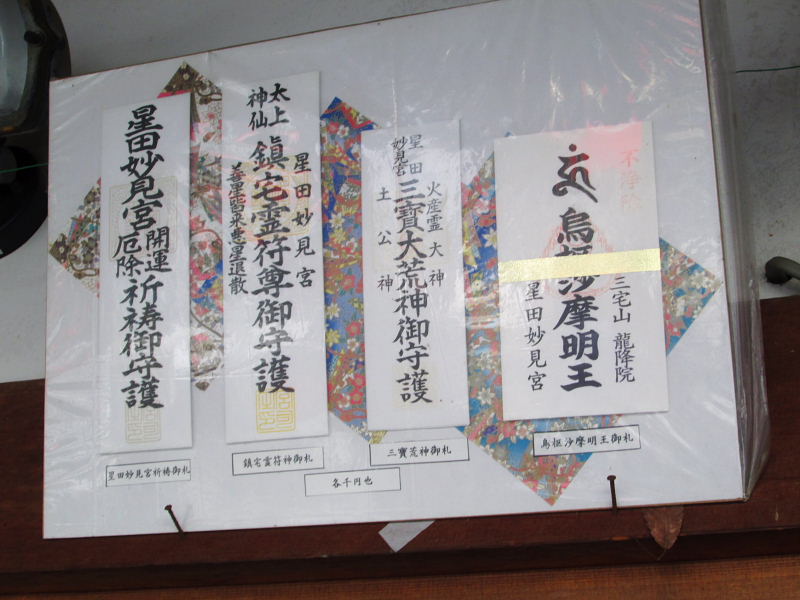 星田妙見宮
開運
厄除
祈祷御守護
星田妙見宮祈祷御札
太上
神仙
鎮宅霊符尊御守護
星田妙見宮
善星皆来悪星退散
鎮宅霊符神御札
星田
妙見宮
三寳大荒神御守護
火産霊大神
土公神
三寳荒神御札
各千円也
不浄除
烏枢沙摩明王
三宅山 龍降院
星田妙見宮
烏枢沙摩明王御札